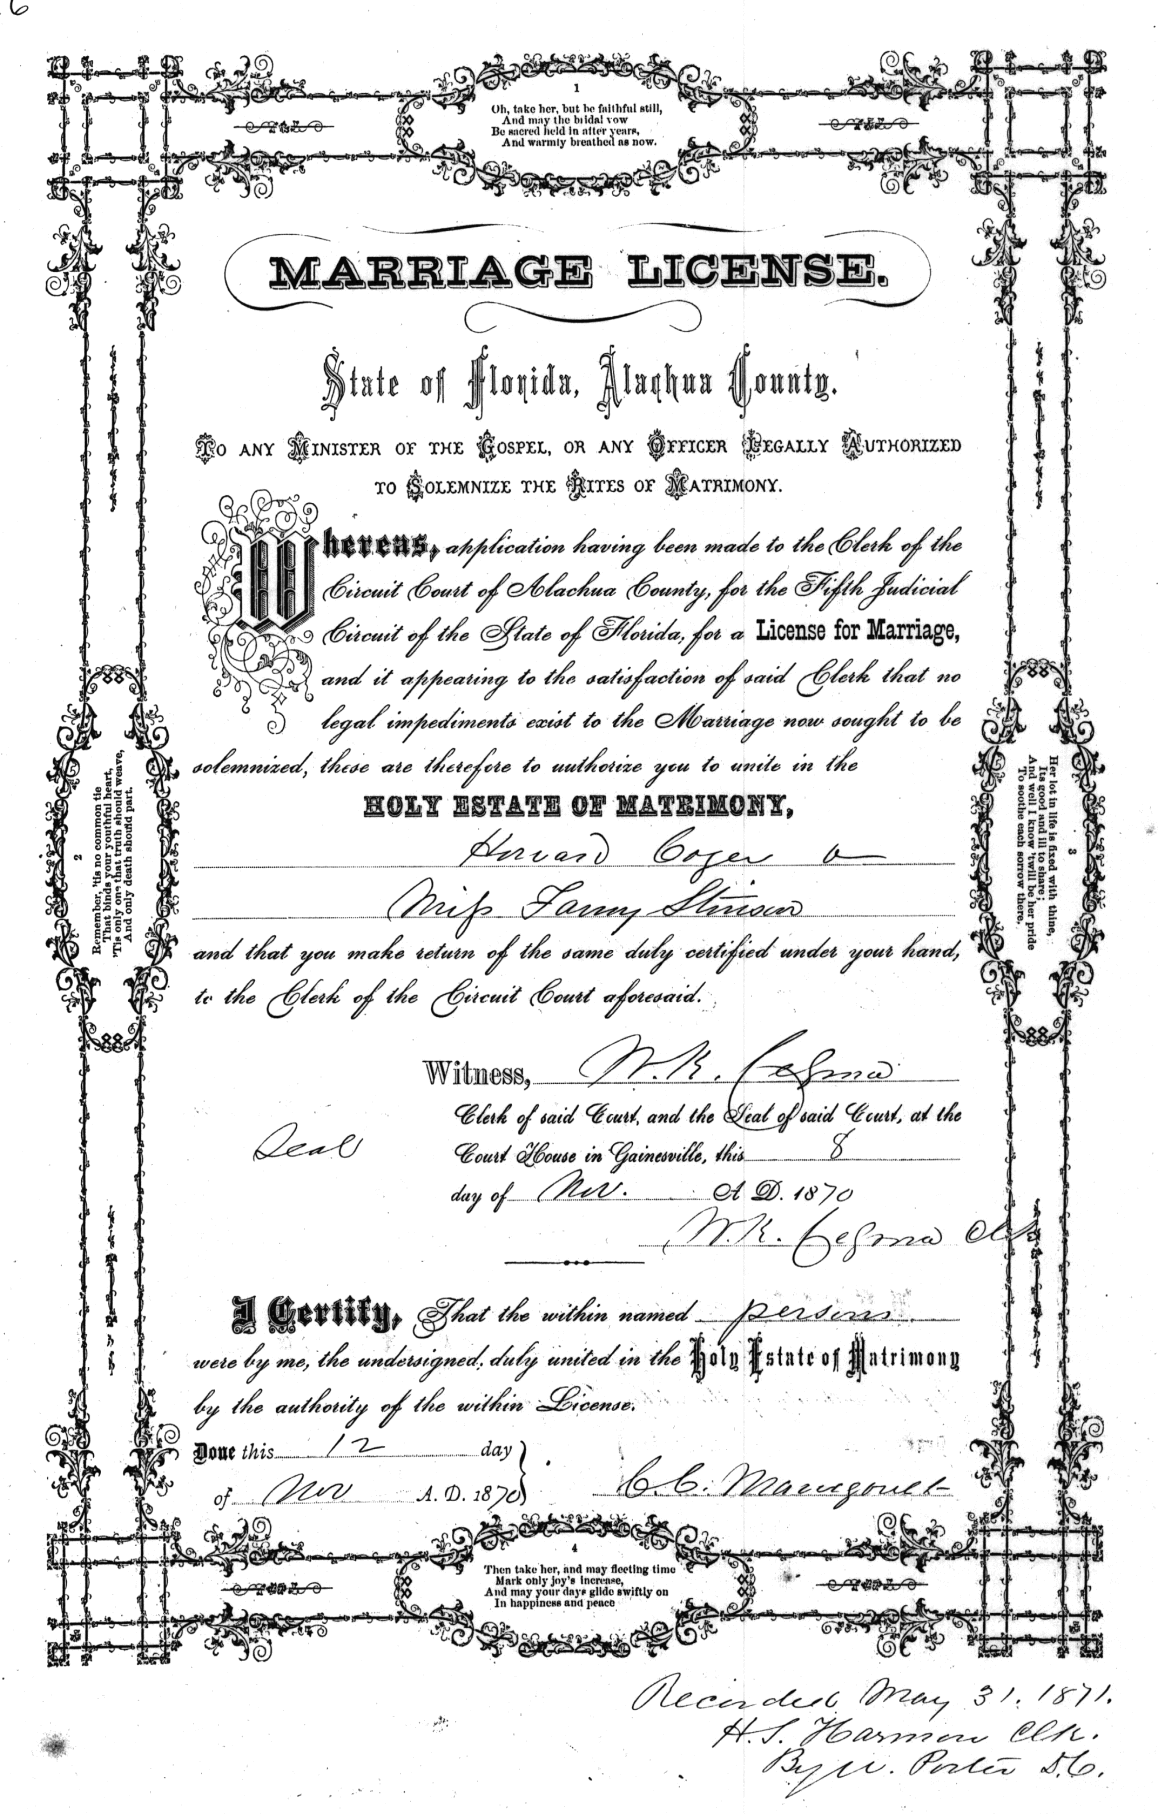 6
1
Oh, take her, but be faithful still,
And may the bridal vow
Be sacred held in after years,
And warmly breathed as now.
MARRIAGE LICENSE.
State of Florida, Alachua County.
TO ANY MINISTER OF THE GOSPEL, OR ANY OFFICER LEGALLY AUTHORIZED
TO SOLEMNIZE THE RITES OF MATRIMONY.
Whereas, application having been made to the Clerk of the
Circuit Court of Alachua County, for the Fifth Judicial
Circuit of the State of Florida, for a License for Marriage,
and it appearing to the satisfaction of said Clerk that no
legal impediments exist to the Marriage now sought to be
solemnized, these are therefore to authorize you to unite in the
HOLY ESTATE OF MATRIMONY,
Howard Coger
Miss Fanny Stinson
and that you make return of the same duly certified under your hand,
to the Clerk of the Circuit Court aforesaid.
Witness, W. K. Cessna
Clerk of said Court, and the Seal of said Court, at the
Seal
Court House in Gainesville, this 8
day of Nov. A. D. 1870
W. K. Cessna Clk
I Certify, That the within named persons
were by me, the undersigned, duly united in the Holy Estate of Matrimony
by the authority of the within License.
Done this 12 day
of Nov A. D. 1870
C. C.
2
Remember, 'tis no common tie
That binds your youthful heart,
'Tis only one that truth should weave,
And only death should part.
3
Her lot in life is fixed with thine,
Its good and ill to share;
And well I know 'twill be her pride
To soothe each sorrow there.
4
Then take her, and may fleeting time
Mark only joy's increase,
And may your days glide swiftly on
In happiness and peace
Recorded May 31. 1871.
H. S. Harmon Clk.
By W. Porter D.C.